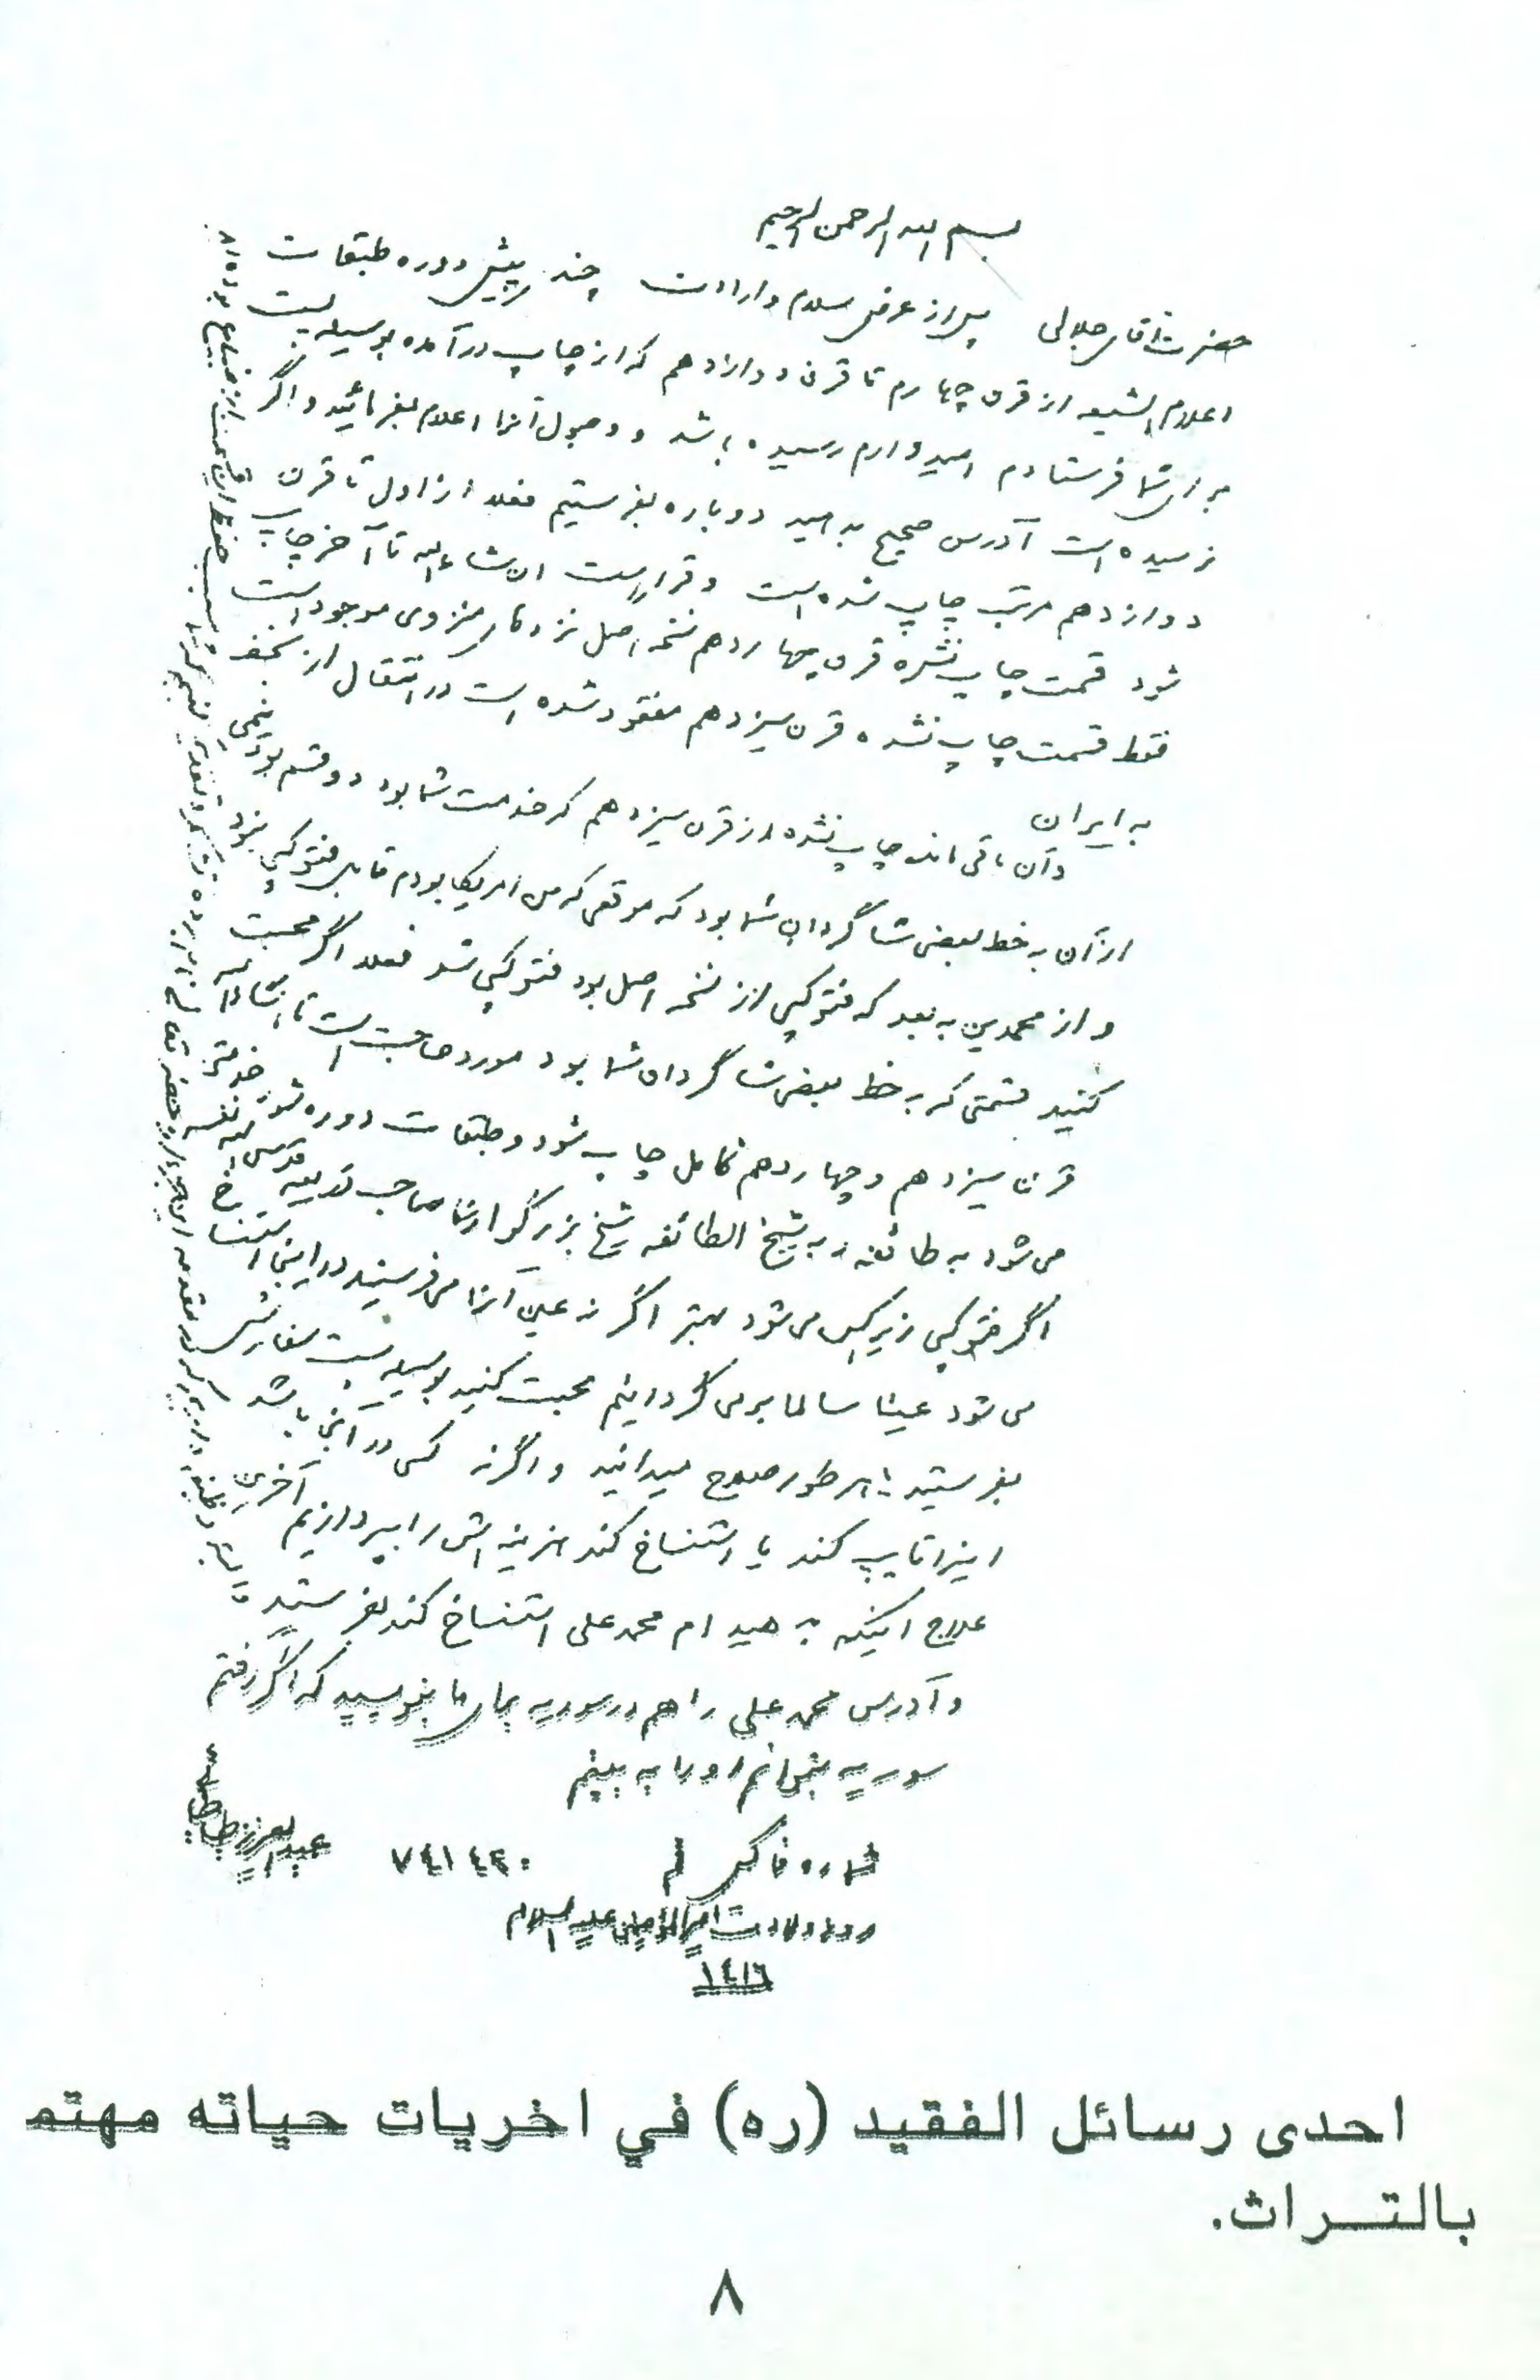 بسم الله الرحمن الرحیم
حضرت آقای جلالی پس از عرض سلام و ارادت چند پیش دوره طبقات
اعلام الشیعه از قرن چهارم تا قرن دوازدهم که از چاپ درآمده بوسیله پست
برای شما فرستادم امیدوارم رسیده باشد و وصول آنرا اعلام بفرمائید و اگر
نرسیده است آدرس صحیح بدهید دوباره بفرستیم فعلا از اول تا قرن
دوازدهم مرتب چاپ شده است و قرار است ان شاء الله تا آخر چاپ
شود قسمت چاپ نشده قرن چهاردهم نسخه اصل نزد آقای منزوی موجود است
فقط قسمت چاپ نشده قرن سیزدهم مفقود شده است در انتقال از نجف
به ایران
و آن باقی مانده چاپ نشده از قرن سیزدهم که خدمت شما بود دو قسم بود نیمی
از آن به خط بعضی شاگردان شما بود که موقعی که من امریکا بودم قابل فتوکپی نبود
و از محمدین به بعد که فتوکپی از نسخه اصل بود فتوکپی شد فعلا اگر محبت
کنید قسمتی که به خط بعضی شاگردان شما بود مورد حاجت است تا انشاء الله
قرن سیزدهم و چهاردهم کامل چاپ شود و طبقات دوره شود خدمتی
می شود به طائفه و به شیخ الطائفه شیخ بزرگوارمان صاحب ذریعه قدس الله نفسه
اگر فتوکپی زیراکس می شود بهتر اگر نه عین آنرا می فرستید در اینجا استنساخ
می شود عینا سالما برمی گردانیم محبت کنید بوسیله پست سفارشی
بفرستید یا هر طور صلاح میدانید و اگر نه کسی در آنجا باشد
اینرا تایپ کند یا استنساخ کند هزینه اش را بپردازیم آخرین
علاج اینکه به محمد علی استنساخ کند بفرستید
و آدرس محمد علی را هم در سوریه برای ما بنویسید که اگر رفتم
سوریه بتوانم او را به بینم
شماره فاکس قم ۷٤۱٤۲۰
عبدالعزیز طباطبائی
روز ولادت امیرالمؤمنین علیه السلام
۱٤۱٦
احدى رسائل الفقيد (ره) في اخريات حياته مهتم
بالتراث.
٨